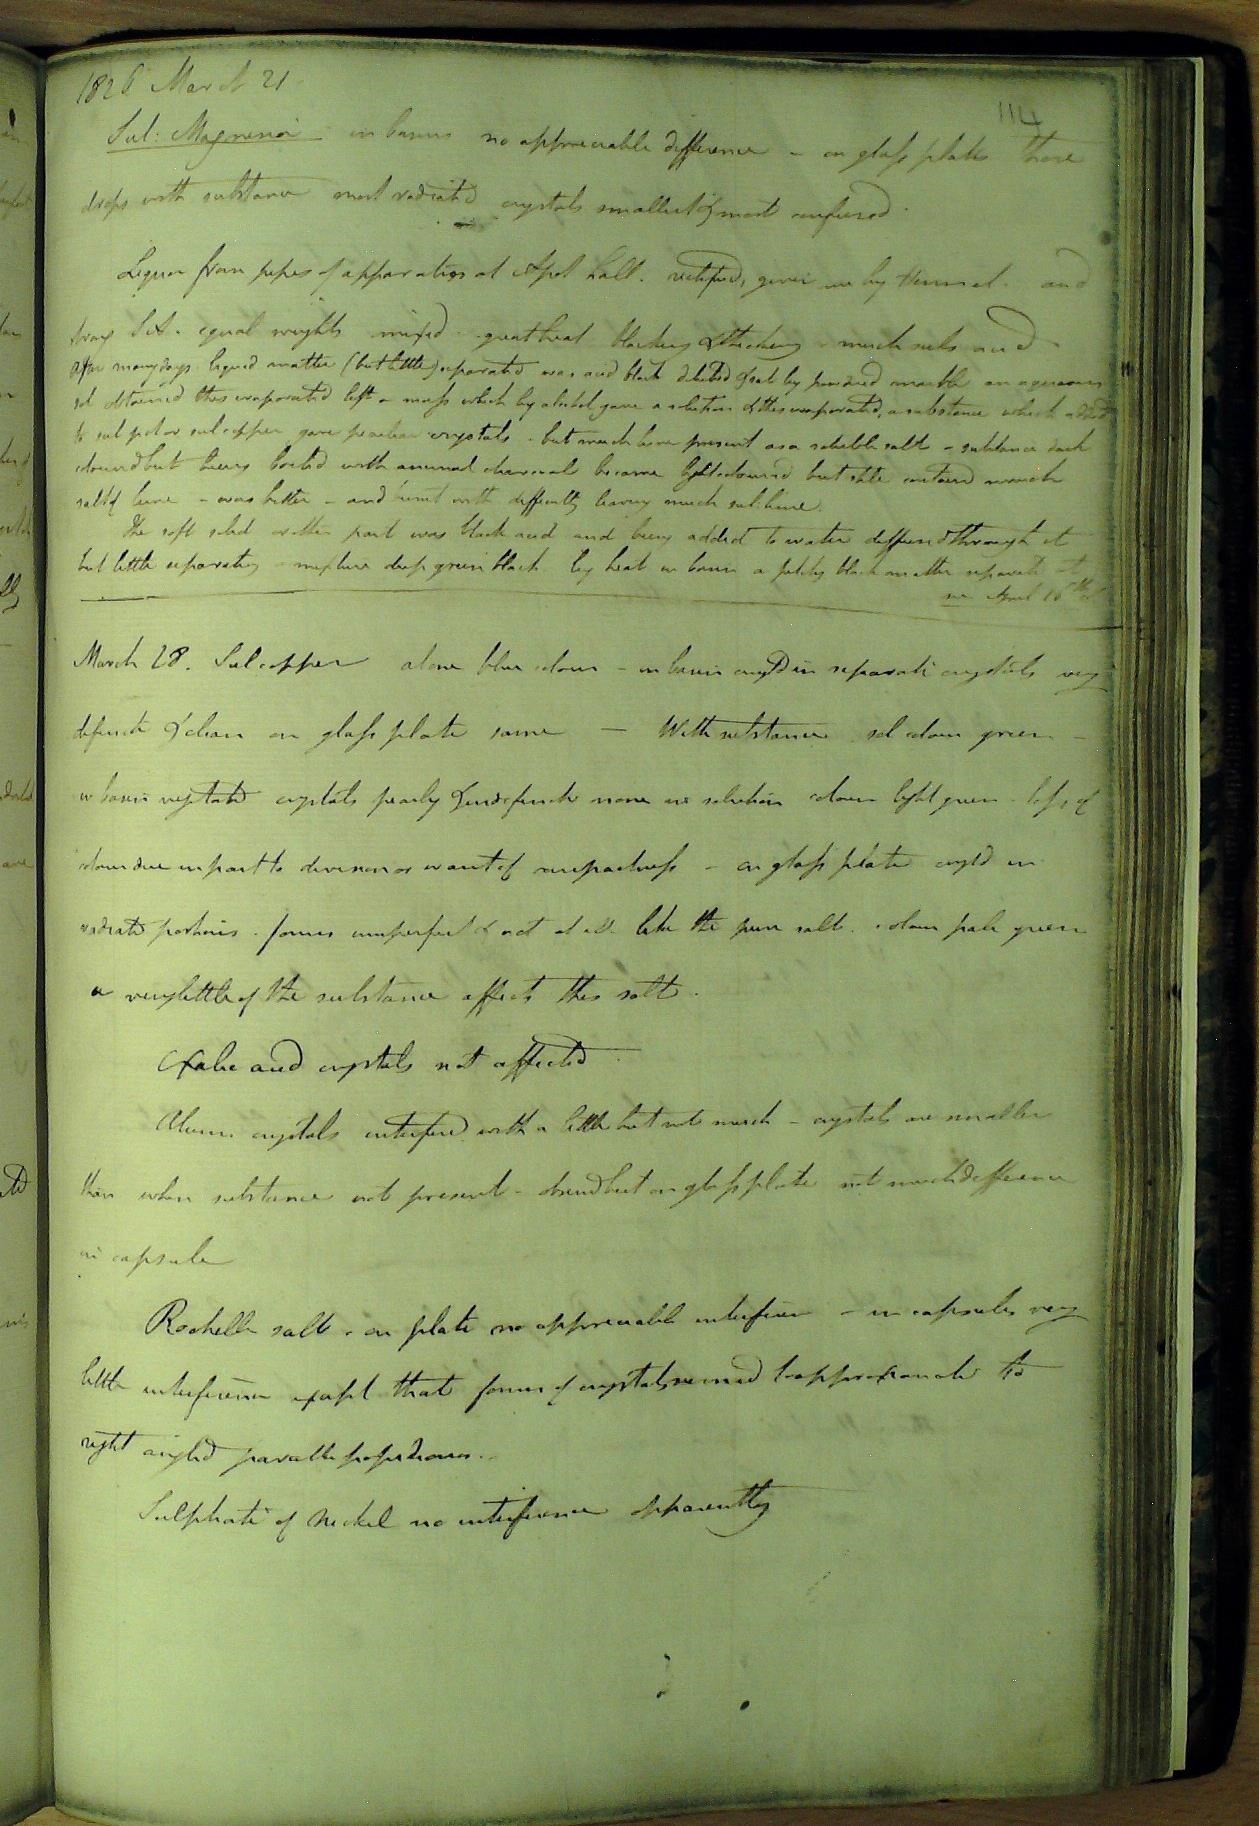 1826 March 21
114
Sul: Magnesia - in basins no appreciable difference - on glass plates those
drops with substance most radiated crystals smallest & most confused.
Liquor from pipes of apparatus at Apot hall. rectified, given me by Hennel. and
strong S.A. equal weights mixed - great heat blackens & thickens - much sul: acid -
After many days liquid matter (but little) separated was acid black diluted & sat by powdered marble an aqueous
sol obtained this evaporated left a mass which by alcohol gave a solution & this evaporated, a substance which added
to sul pot or sul copper gave peculiar crystals - but much lime present as a soluble salt - substance dark
coloured but being boiled with animal charcoal became light coloured but still contained much
salt of lime - was bitter - and burnt with difficulty leaving much sul: lime.
The soft solid or other part was black acid and being added to water diffused through it
but little separating - mixture deep green black. by heat in basin a pitchy black matter separated
see April 16th
March 28. Sul copper alone blue colour - in basin crystd in separate crystals very
definite & clear on glass plate same — With substance sol colour green -
in basin vegetated crystals pearly & indefinite none in solution colour light green - loss of
colour due in part to division or want of compactness - on glass plate crystd in
radiated portions - forms imperfect & not at all like the pure salt. colour pale green
a very little of the substance affects this salt.
Oxalic acid crystals not affected.
Alum crystals interfered with a little but not much - crystals are smaller
than when substance not present - observed but on glass plate not much difference
in capsule
Rochelle salt - on plate no appreciable interference - in capsules very
little interference except that forms of crystals seemed to approximate to
right angled parallelopipedons.
Sulphate of Nickel no interference apparently